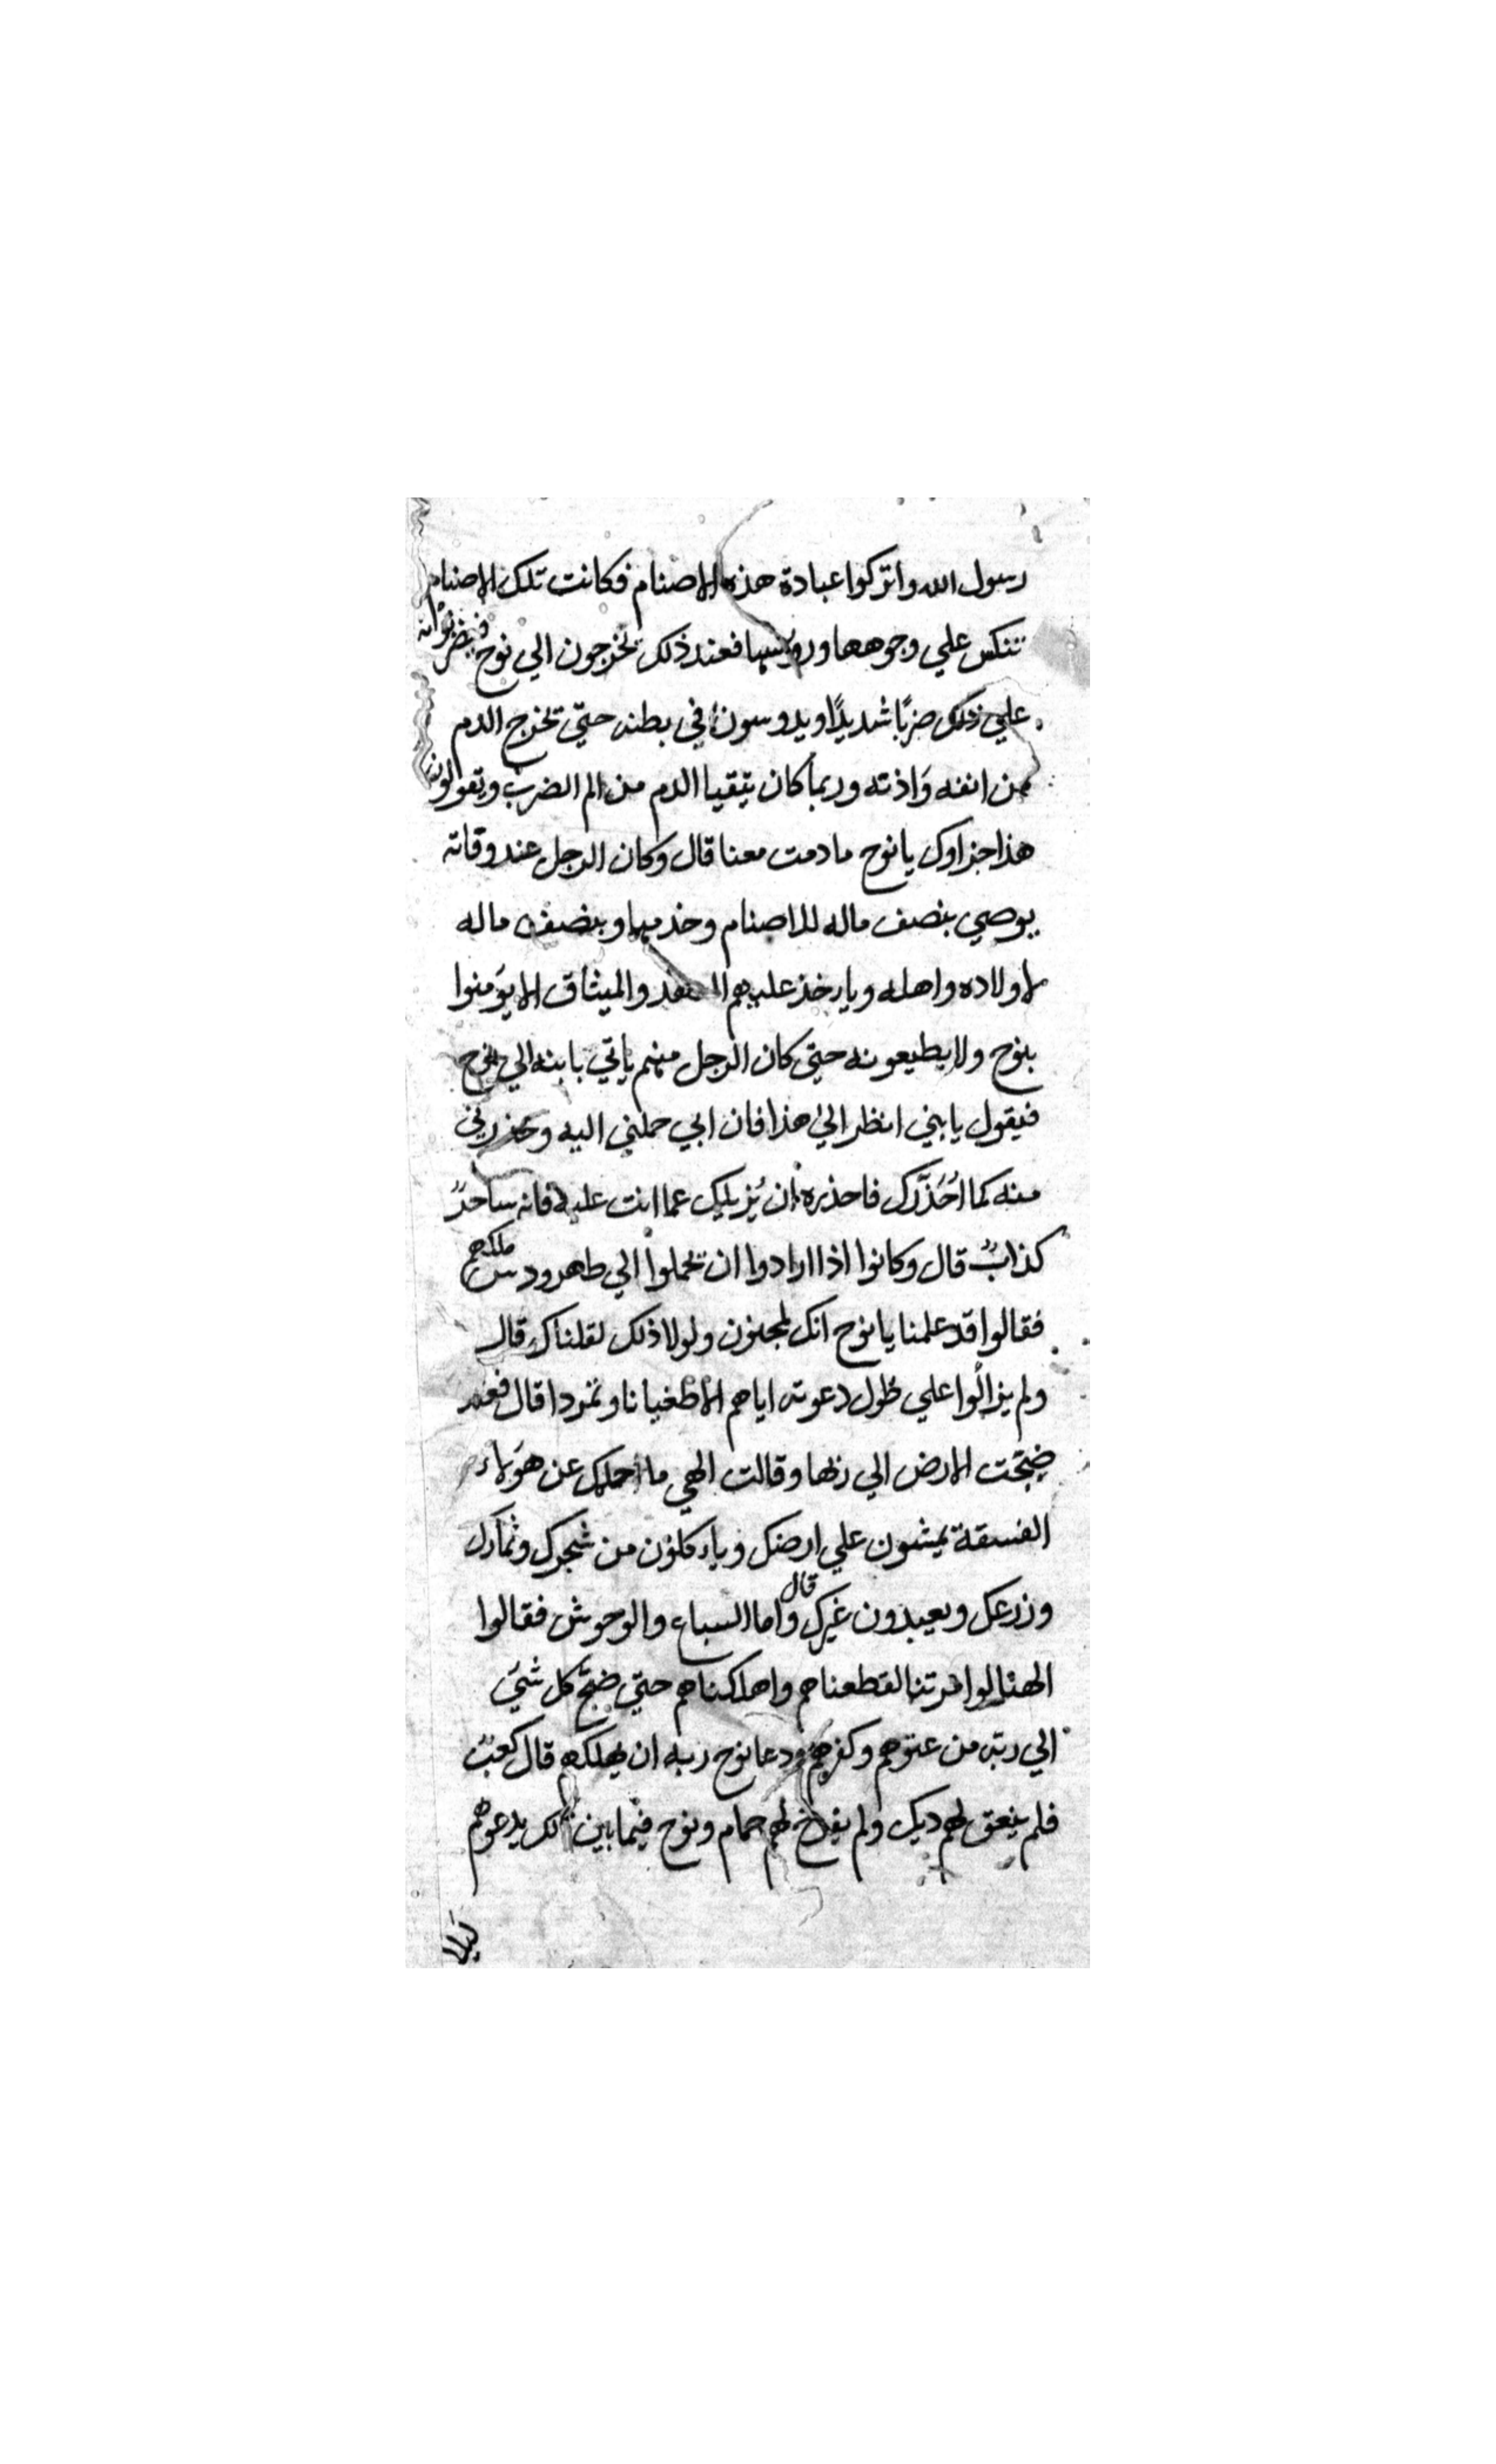 رسول الله واتركوا عبادة هذه الاصنام فكانت تلك الاصنام
تنكس علي وجوهها ورؤسها فعند ذلك يخرجون الي نوح فيضربونه
علي ذلك ضربًا شديدًا ويدوسون في بطنه حتي تخرج الدم
من انفه وَاذنه وربما كان يتقيا الدم من الم الضرب ويقولون
هذا جزاوك يا نوح ما دمت معنا قال وكان الرجل عند وفاته
يوصي بنصف ماله للاصنام وخدمها وبنصف ماله
لاولاده واهله وياءخذ عليهم والميثاق الا يؤمنوا
بنوح ولا يطيعونه حتي كان الرجل منهم ياتي بابنه الي نوح
فيقول يا بني انظر الي هذا فان ابي حملني اليه وحذرني
منه كما اُحَذّرك فاحذره ان يُزيلك عما انت عليه فانه ساحرٌ
كذابٌ قال وكانوا اذا ارادوا ان يحملوا الي طهرودس ملكهم
فقالوا قد علمنا يا نوح انك لمجنون ولولا ذلك لقتلناك قال
ولم يزالوا علي طول دعوته اياهم الا طغيانا وتمردا قال فعند
ضجّت الارض الي ربها وقالت الهي ما احلمك عن هؤلاء
الفسقة يمشون علي ارضك وياءكلون من شجرك وثمارك
وزرعك ويعبدون غيرك قال واما السباع والوحوش فقالوا
الهنا لو امرتنا لقطعناهم واهلكناهم حتي ضجّ كل شئ
الي ربّه من عتوهم وكفرهم ودعا نوح ربه ان يهلكهم قال كعبٌ
فلم ينعق لهم ديك ولم يفرخ لهم حمام ونوح فيما بين ذلك يدعوهم
ليلا